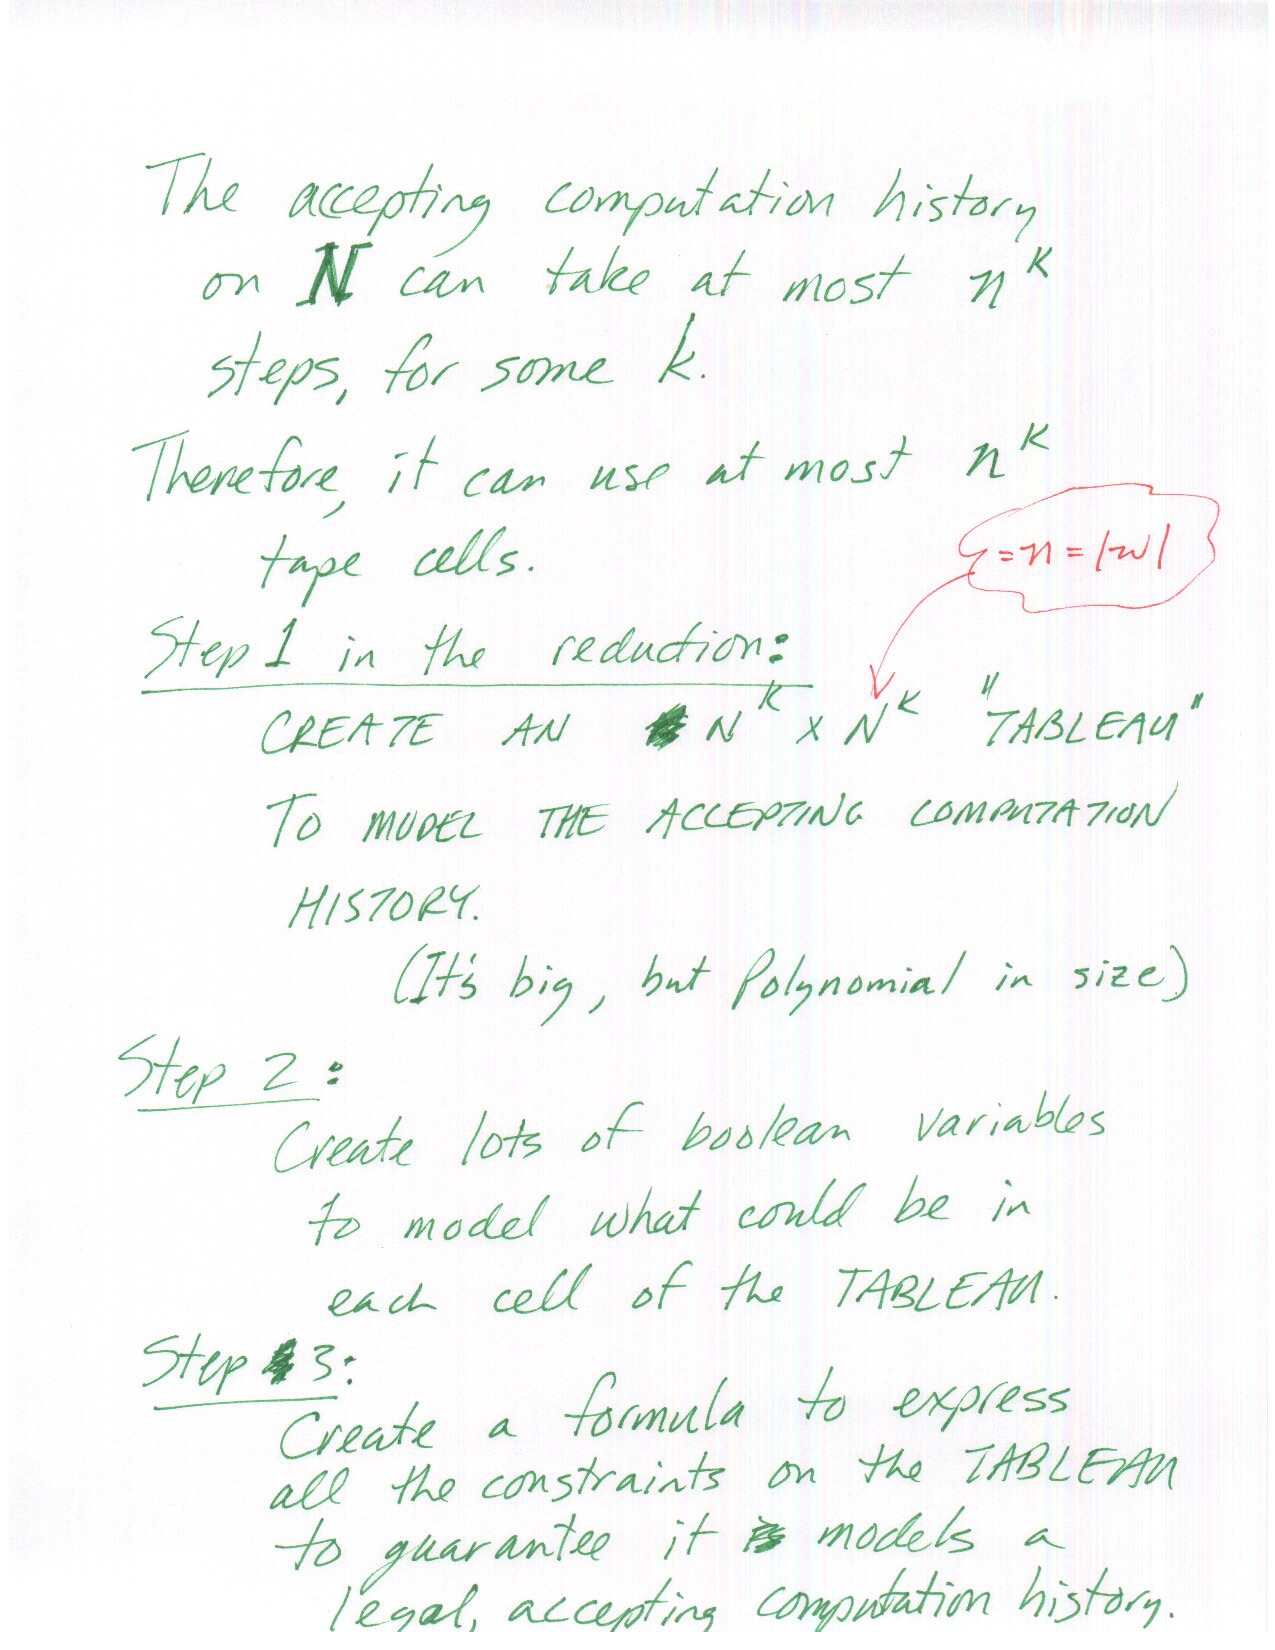 The accepting computation history
on N can take at most n^k
steps, for some k.
Therefore, it can use at most n^k
tape cells.
= n = |w|
Step 1 in the reduction:
CREATE AN N^K x N^K "TABLEAU"
TO MODEL THE ACCEPTING COMPUTATION
HISTORY.
(It's big, but Polynomial in size)
Step 2:
Create lots of boolean variables
to model what could be in
each cell of the TABLEAU.
Step 3:
Create a formula to express
all the constraints on the TABLEAU
to guarantee it models a
legal, accepting computation history.